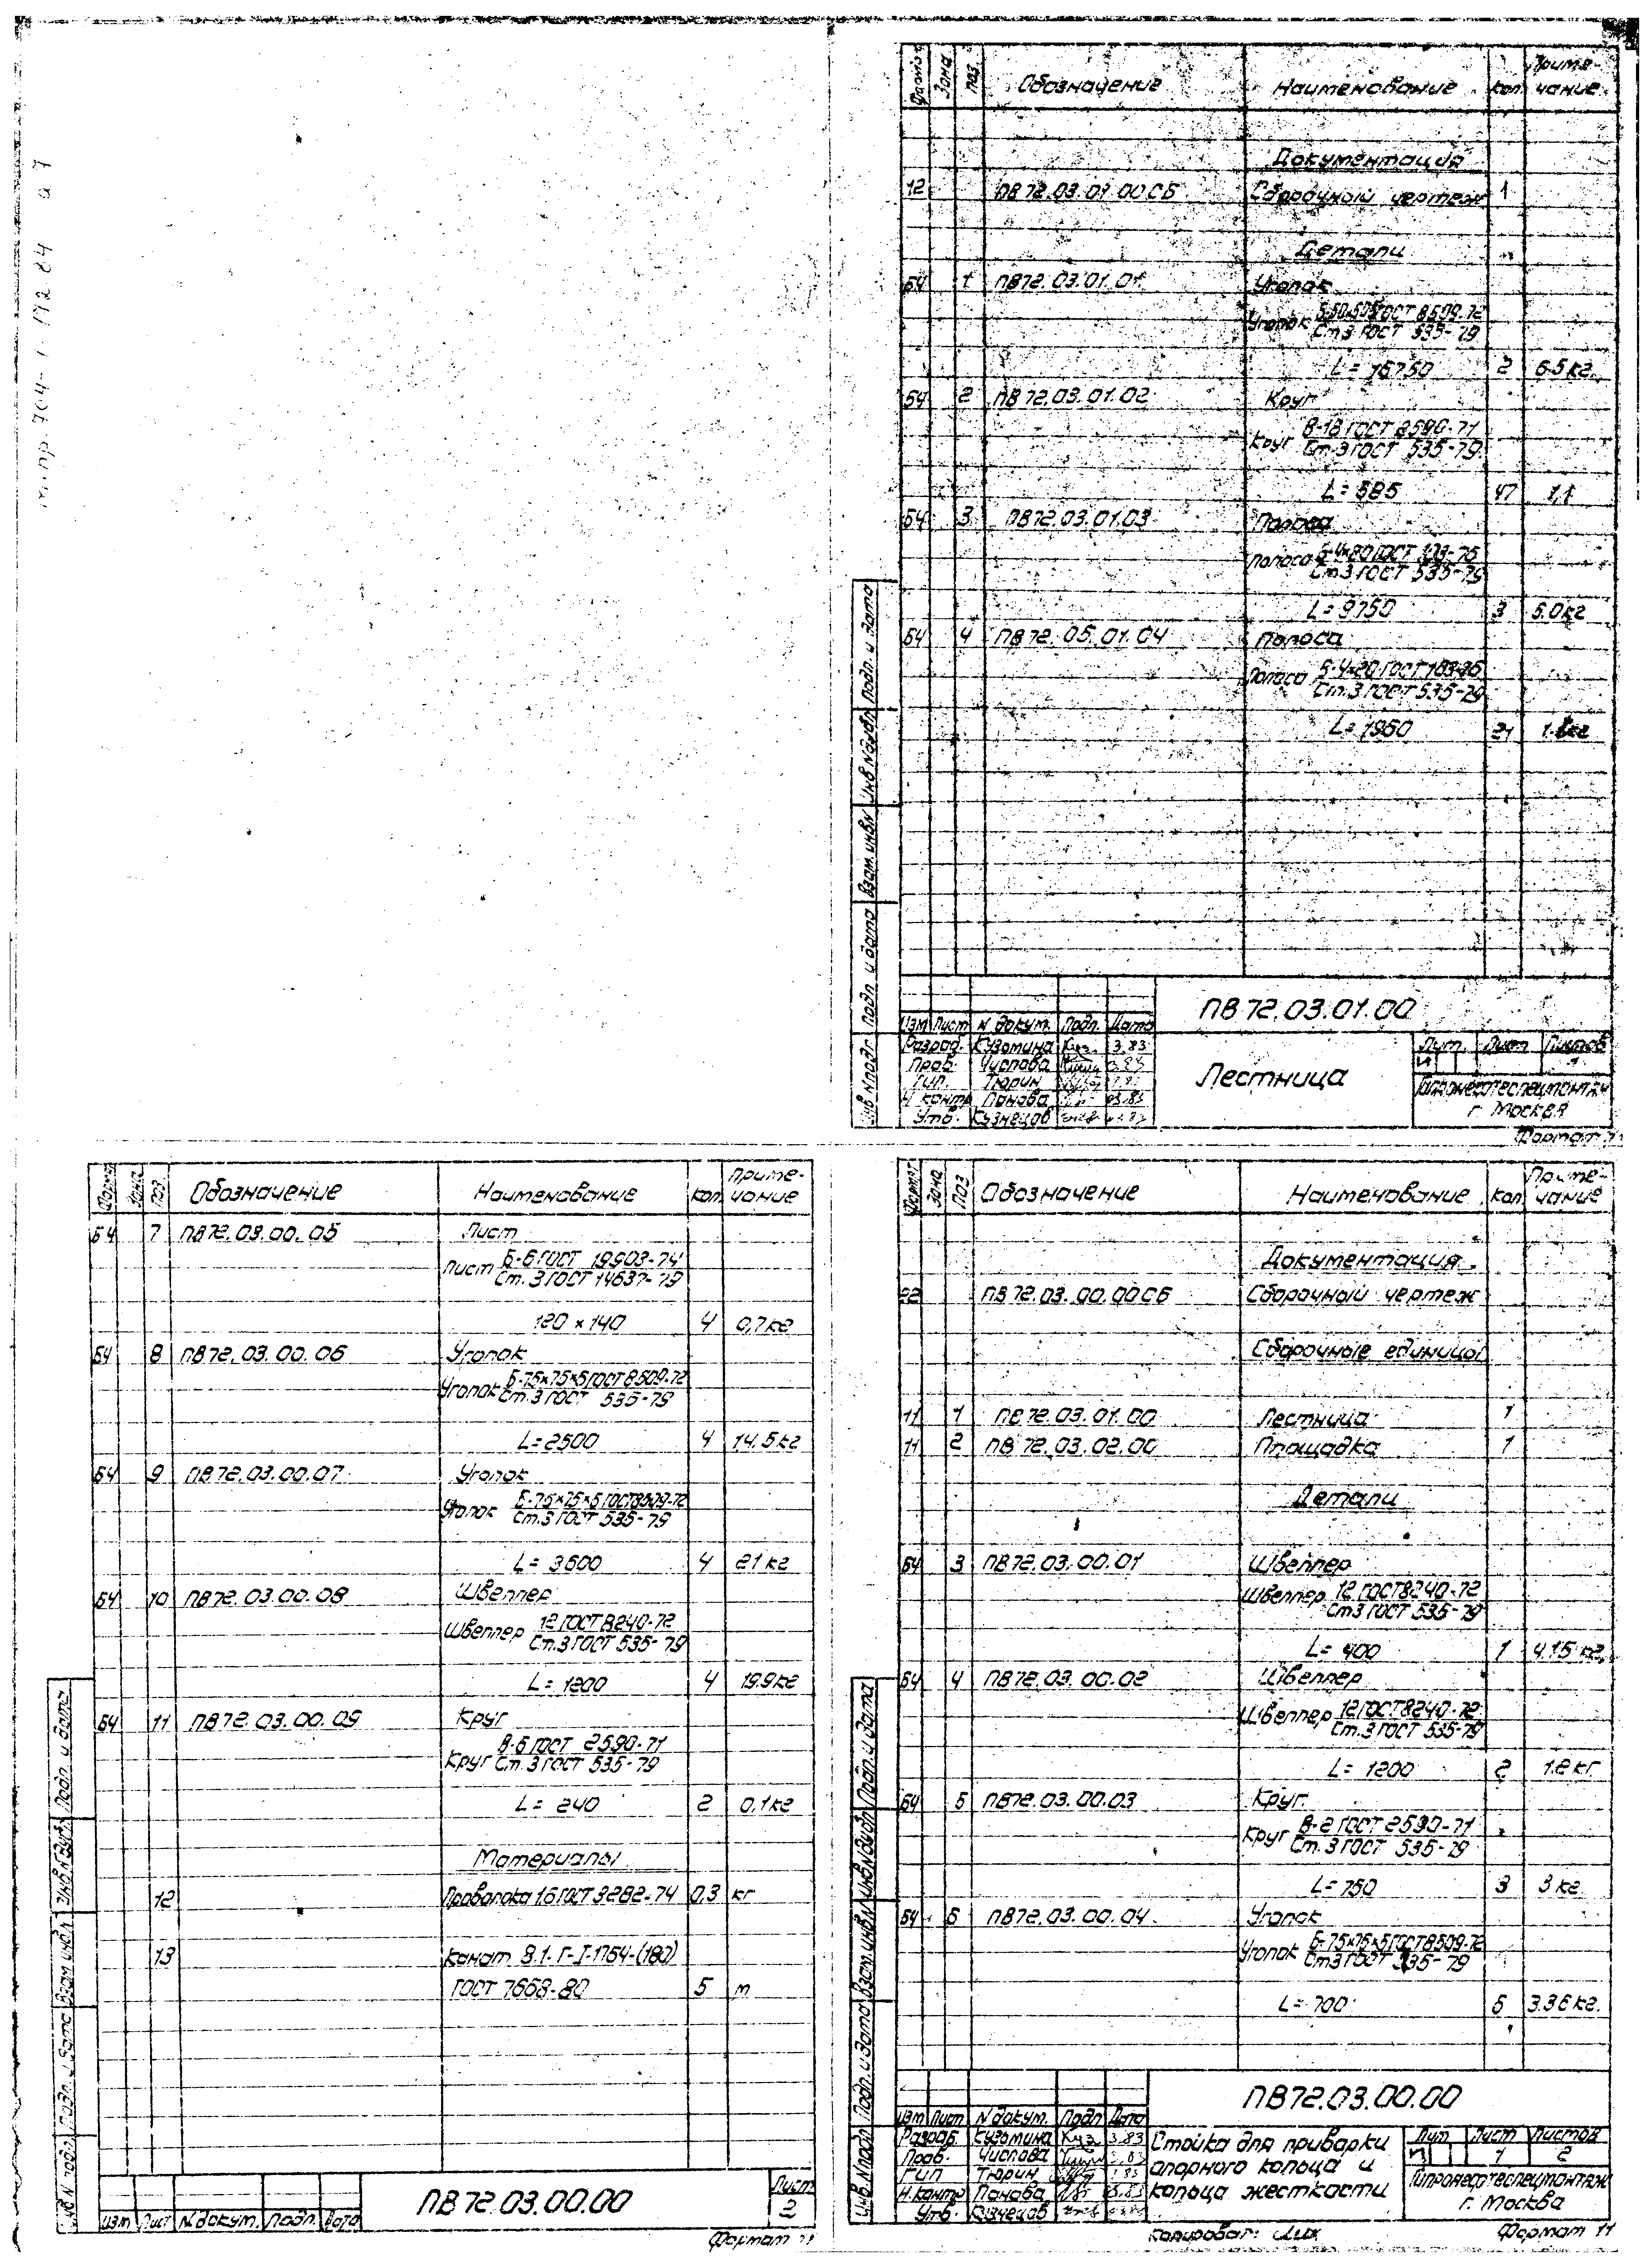 Формат Зона Поз. Обозначение Наименование Кол. Примечание
Документация
12 ПВ72.03.01.00СБ Сборочный чертеж 1
Детали
БЧ 1 ПВ72.03.01.01 Уголок
Уголок Б-50×50×5 ГОСТ 8509-72
Ст.3 ГОСТ 535-79
L=15750 2 65кг.
БЧ 2 ПВ72.03.01.02 Круг
Круг В-18 ГОСТ 2590-71
Ст.3 ГОСТ 535-79
L=585 47 1,1
БЧ 3 ПВ72.03.01.03 Полоса
Полоса Б-4×20 ГОСТ 103-76
Ст.3 ГОСТ 535-79
L=9750 3 5.0кг
БЧ 4 ПВ72.05.01.04 Полоса
Полоса Б-4×20 ГОСТ 103-76
Ст.3 ГОСТ 535-79
L=1960 21
Подп. и дата
Инв № дубл
Взам. инв №
Подп и дата
Инв № подл
ПВ72.03.01.00
Изм Лист N докум. Подп. Дата
Разраб. Кузьмина 3.83
Пров. Чистова
ГИП. Тюрин
Н контр Панова
Утв. Кузнецов
Лестница
Лит. Лист Листов
И 1
Гипронефтеспецмонтаж
г. Москва
Формат 11
Формат Зона Поз. Обозначение Наименование Кол Примечание
БЧ 7 ПВ72.03.00.05 Лист
Лист Б-6 ГОСТ 19903-74
Ст.3 ГОСТ 14637-79
120 × 140 4 0,7кг
БЧ 8 ПВ72.03.00.06 Уголок
Уголок Б-75×75×5 ГОСТ 8509-72
Ст.3 ГОСТ 535-79
L=2500 4 14.5кг
БЧ 9 ПВ72.03.00.07 Уголок
Уголок Б-75×75×5 ГОСТ 8509-72
Ст.3 ГОСТ 535-79
L=3600 4 21кг
БЧ 10 ПВ72.03.00.08 Швеллер
Швеллер 12 ГОСТ 8240-72
Ст.3 ГОСТ 535-79
L=1200 4 19.9кг
БЧ 11 ПВ72.03.00.09 Круг
Круг В-6 ГОСТ 2590-71
Ст.3 ГОСТ 535-79
L= 240 2 0,1кг
Материалы
12 Проволока 1.6 ГОСТ 3282-74 0,3 кг
13 Канат 9.1-Г-I-1764-(180)
ГОСТ 7668-80 5 м
Подп. и дата
Инв № дубл
Взам инв №
Подп. и дата
Инв N подл.
Изм Лист N докум. Подп. Дата
ПВ72.03.00.00
Лист
2
Формат 11
Формат Зона Поз Обозначение Наименование Кол Примечание
Документация
22 ПВ72.03.00.00СБ Сборочный чертеж
Сборочные единицы
11 1 ПВ72.03.01.00 Лестница 1
11 2 ПВ72.03.02.00 Площадка 1
Детали
БЧ 3 ПВ72.03.00.01 Швеллер
Швеллер 12 ГОСТ 8240-72
Ст3 ГОСТ 535-79
L= 400 1 4.15 кг.
БЧ 4 ПВ72.03.00.02 Швеллер
Швеллер 12 ГОСТ 8240-72
Ст.3 ГОСТ 535-79
L= 1200 2 1.2 кг
БЧ 5 ПВ72.03.00.03 Круг.
Круг В-2 ГОСТ 2590-71
Ст.3 ГОСТ 535-79
L=750 3 3 кг
БЧ 6 ПВ72.03.00.04 Уголок
Уголок Б-75×75×5 ГОСТ 8509-72
Ст3 ГОСТ 535-79
L=700 6 3.36кг.
Подп. и дата
Инв № дубл
Взам. инв №
Подп. и дата
Инв. N подл
ПВ72.03.00.00
Изм Лист N докум. Подп Дата
Разраб. Кузьмина 3.83
Пров. Чистова
ГИП Тюрин
Н.контр Панова
Утв. Кузнецов
Стойка для приварки
опорного кольца и
кольца жесткости
Лит Лист Листов
И 1 2
Гипронефтеспецмонтаж
г. Москва
Копировал:
Формат 11